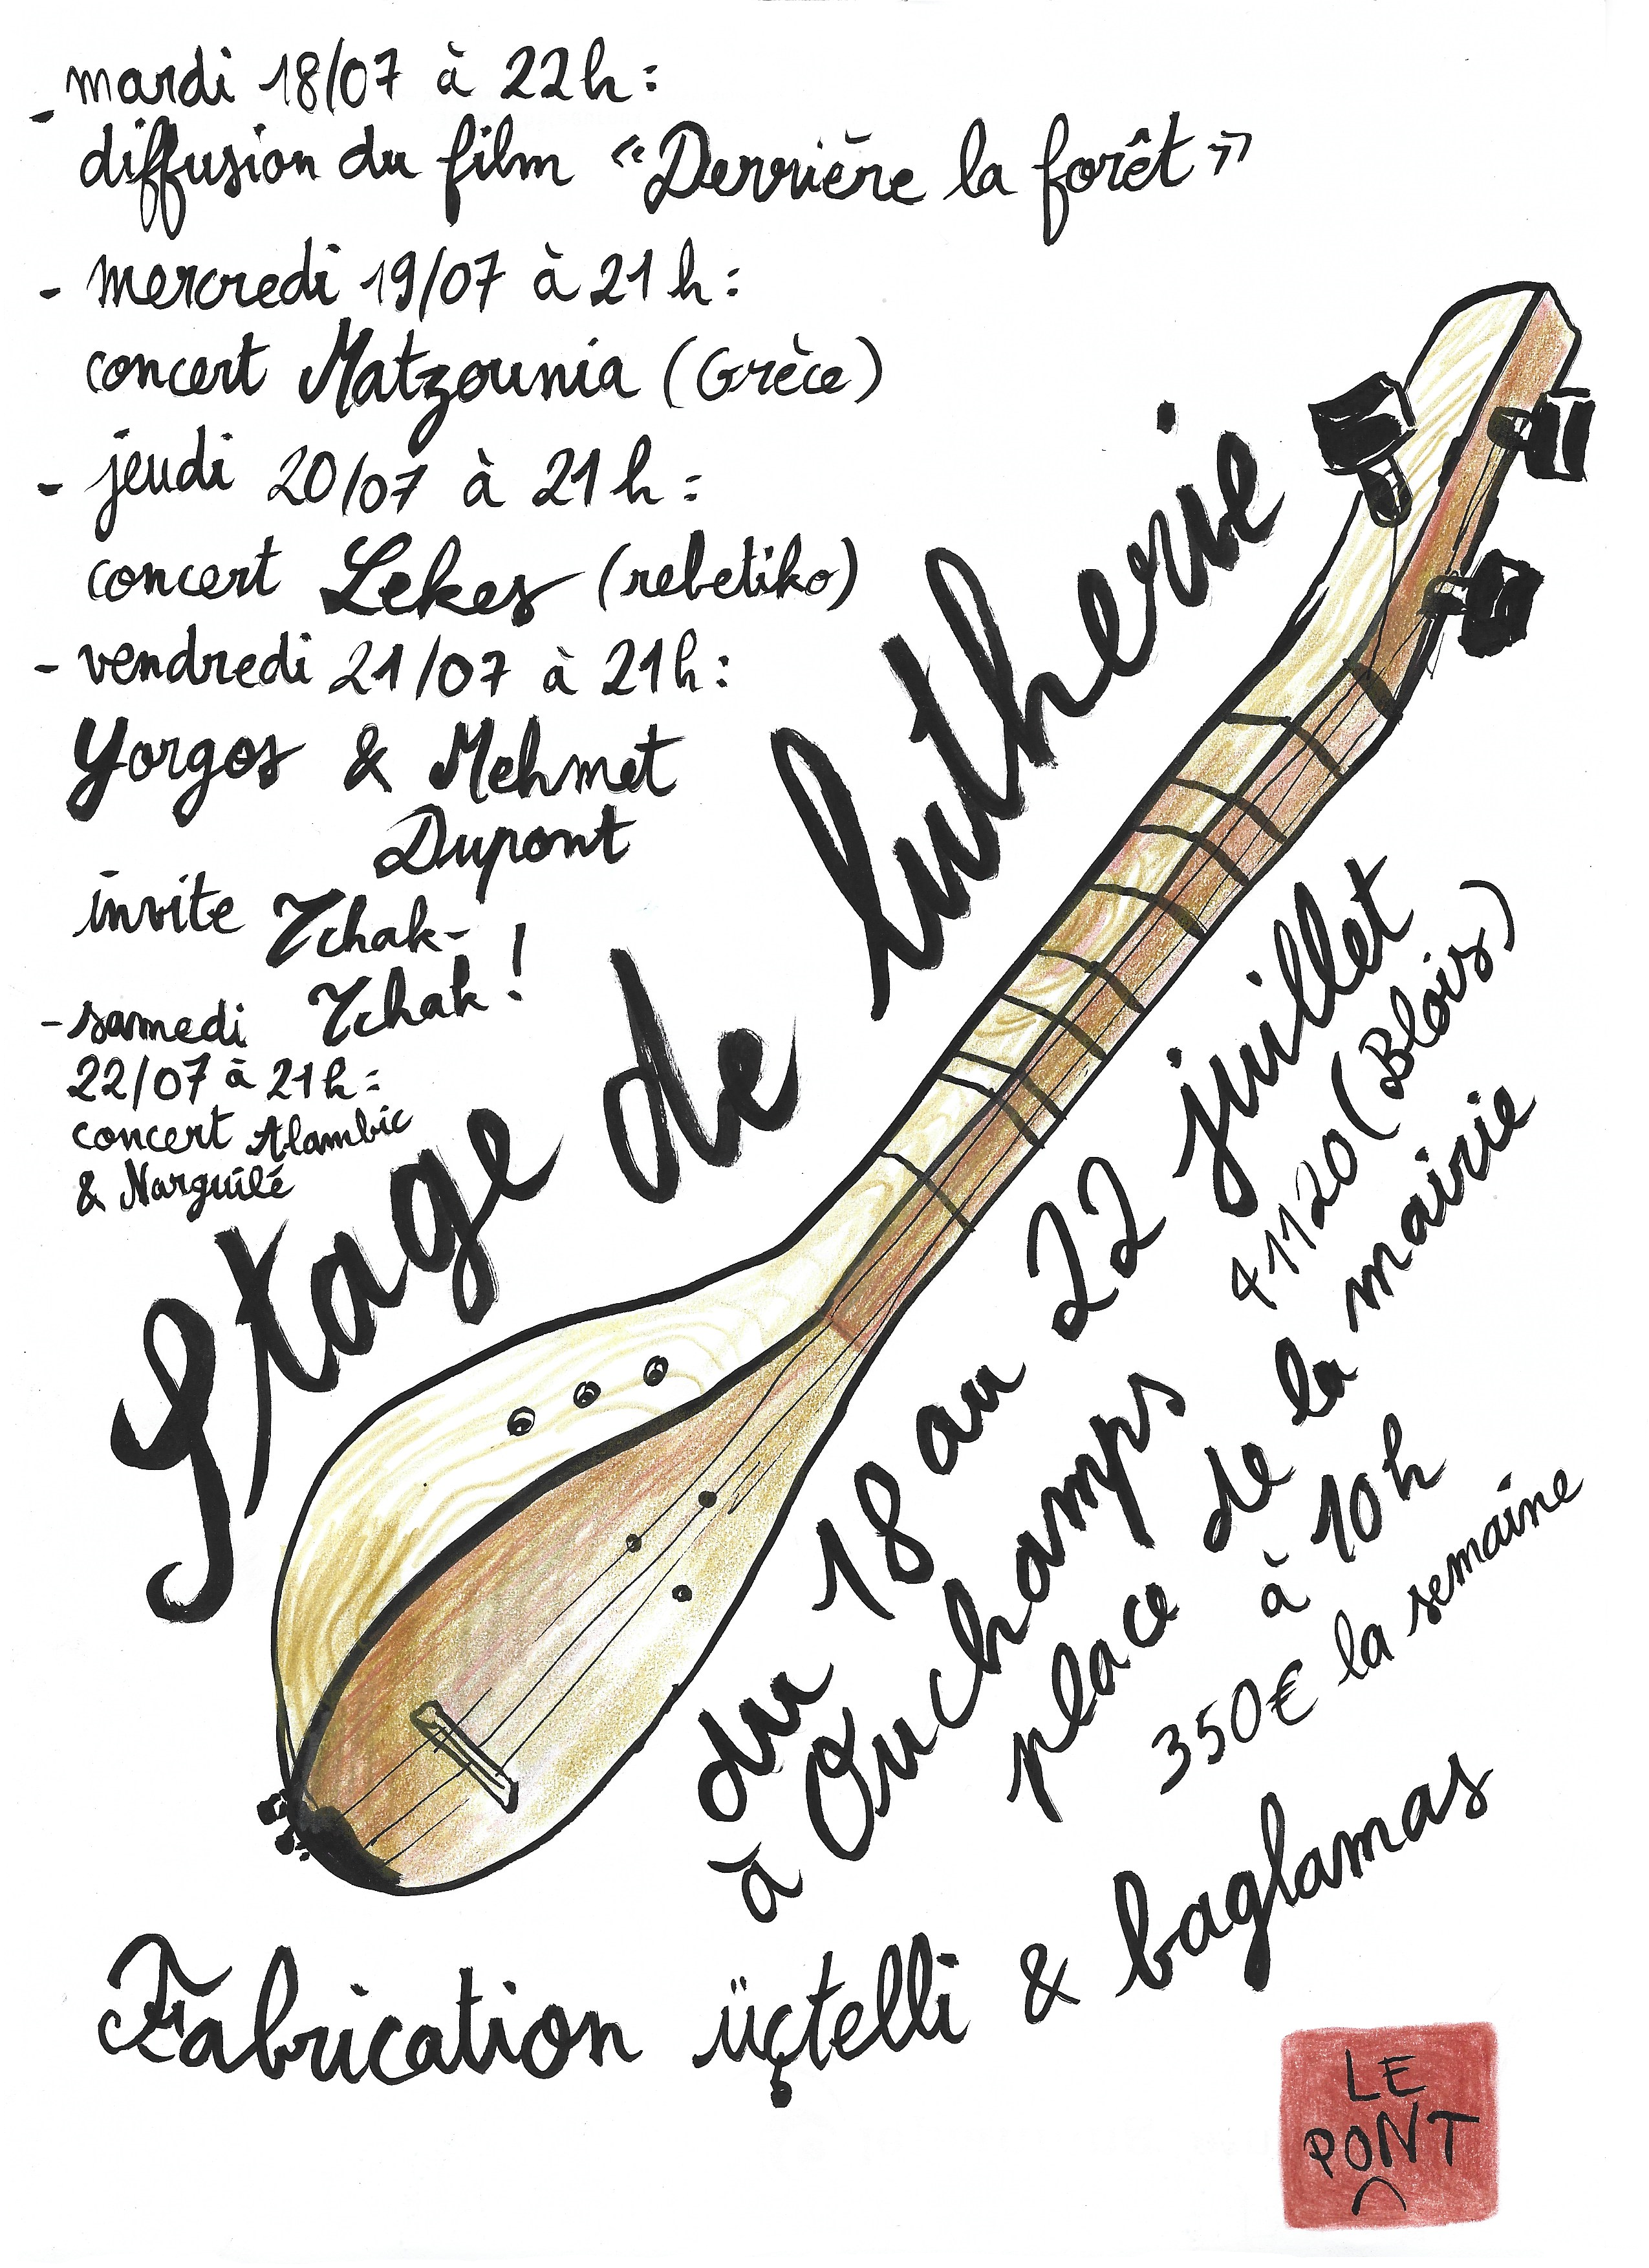 - mardi 18/07 à 22h :
diffusion du film « Derrière la forêt »
- mercredi 19/07 à 21h :
concert Matzounia (Grèce)
- jeudi 20/07 à 21h :
concert Lekes (rebetiko)
- vendredi 21/07 à 21h :
Yorgos & Mehmet
Dupont
invite Tchak-
Tchak !
- samedi
22/07 à 21h :
concert Alambic
& Narguilé
Stage de lutherie
du 18 au 22 juillet
à Ouchamps 41120 (Blois)
place de la mairie
à 10h
350€ la semaine
Fabrication üçtelli & baglamas
LE
PONT